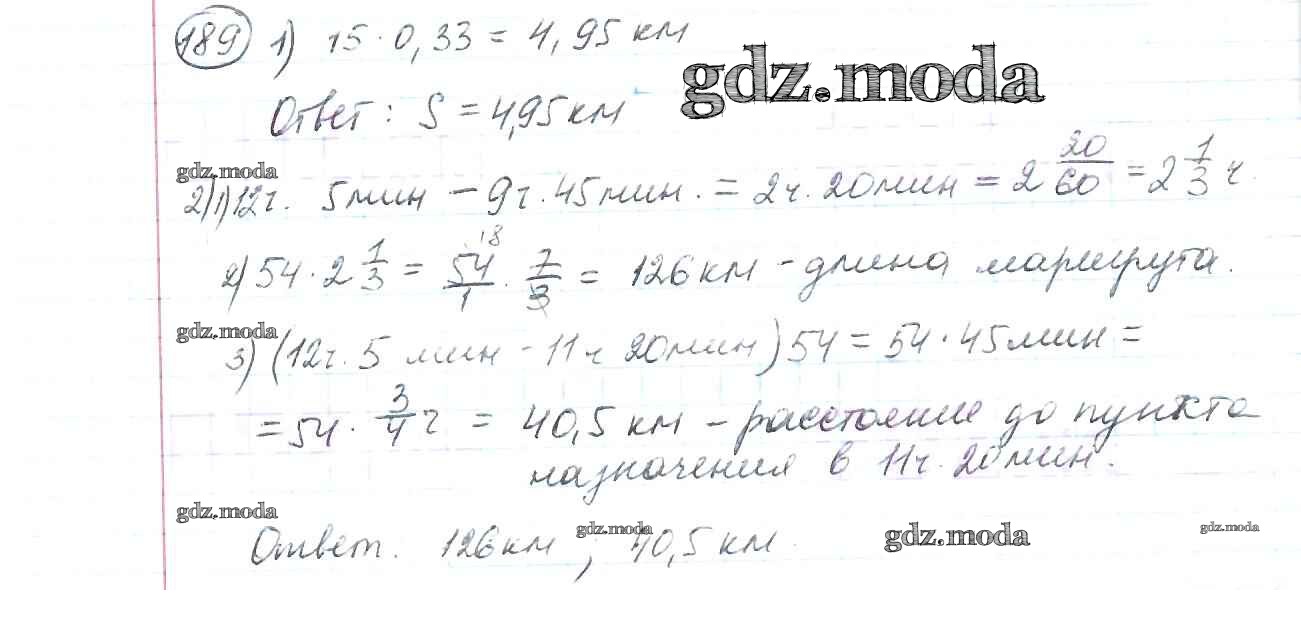 189 1) 15 · 0,33 = 4,95 км
gdz.moda
Ответ: S = 4,95 км
gdz.moda
2) 1) 12 ч. 5 мин – 9 ч. 45 мин. = 2 ч. 20 мин = 2 20/60 = 2 1/3 ч.
2) 54 · 2 1/3 = 54/1 18 · 7/3 = 126 км - длина маршрута.
gdz.moda
3) (12 ч. 5 мин - 11 ч 20 мин) 54 = 54 · 45 мин =
= 54 · 3/4 ч = 40,5 км – расстояние до пункта
назначения в 11 ч. 20 мин.
gdz.moda
Ответ. 126 км ; 40,5 км
gdz.moda
gdz.moda
gdz.moda